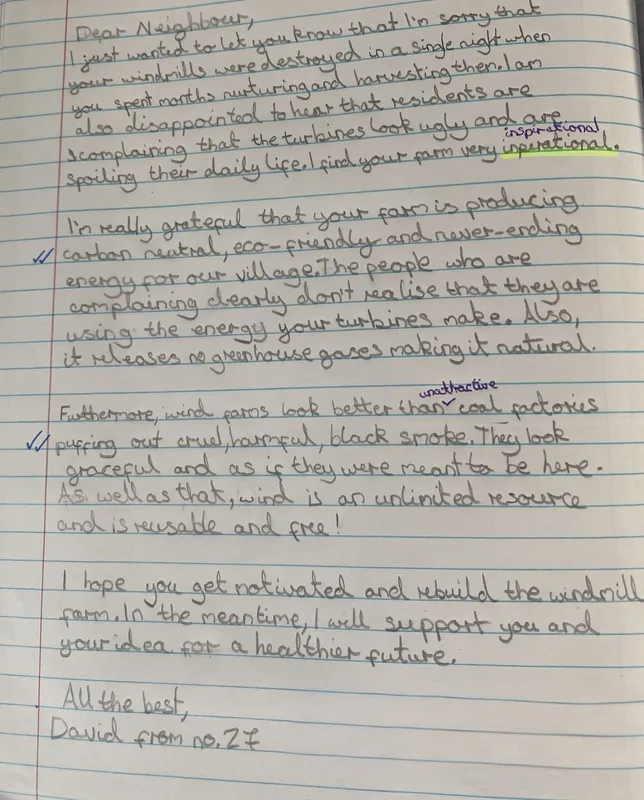 Dear Neighbour,
I just wanted to let you know that I'm sorry that
your windmills were destroyed in a single night when
you spent months nurturing and harvesting then. I am
also disappointed to hear that residents are
complaining that the turbines look ugly and are
inspirational
spoiling their daily life. I find your farm very inperational.
I'm really grateful that your farm is producing
carbon neutral, eco-friendly and never-ending
energy for our village. The people who are
complaining clearly don't realise that they are
using the energy your turbines make. Also,
it releases no greenhouse gases making it natural.
unattractive
Furthermore, wind farms look better than coal factories
puffing out cruel, harmful, black smoke. They look
graceful and as if they were meant to be here.
As well as that, wind is an unlimited resource
and is reusable and free!
I hope you get motivated and rebuild the windmill
farm. In the meantime, I will support you and
your idea for a healthier future.
All the best,
David from no.27